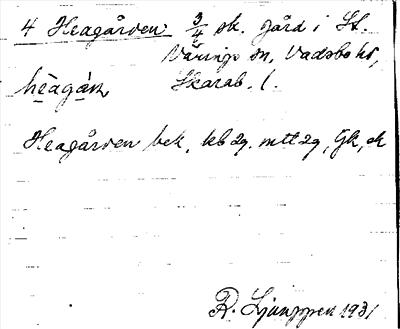 4 Heagården 3/4 sk. gård i St.
Våringe sn, Vadsbo hd,
hèagán Skarab. l.
Heagården bek, kb 29. mtt 29, Gk, ek
R. Ljunggren 1931